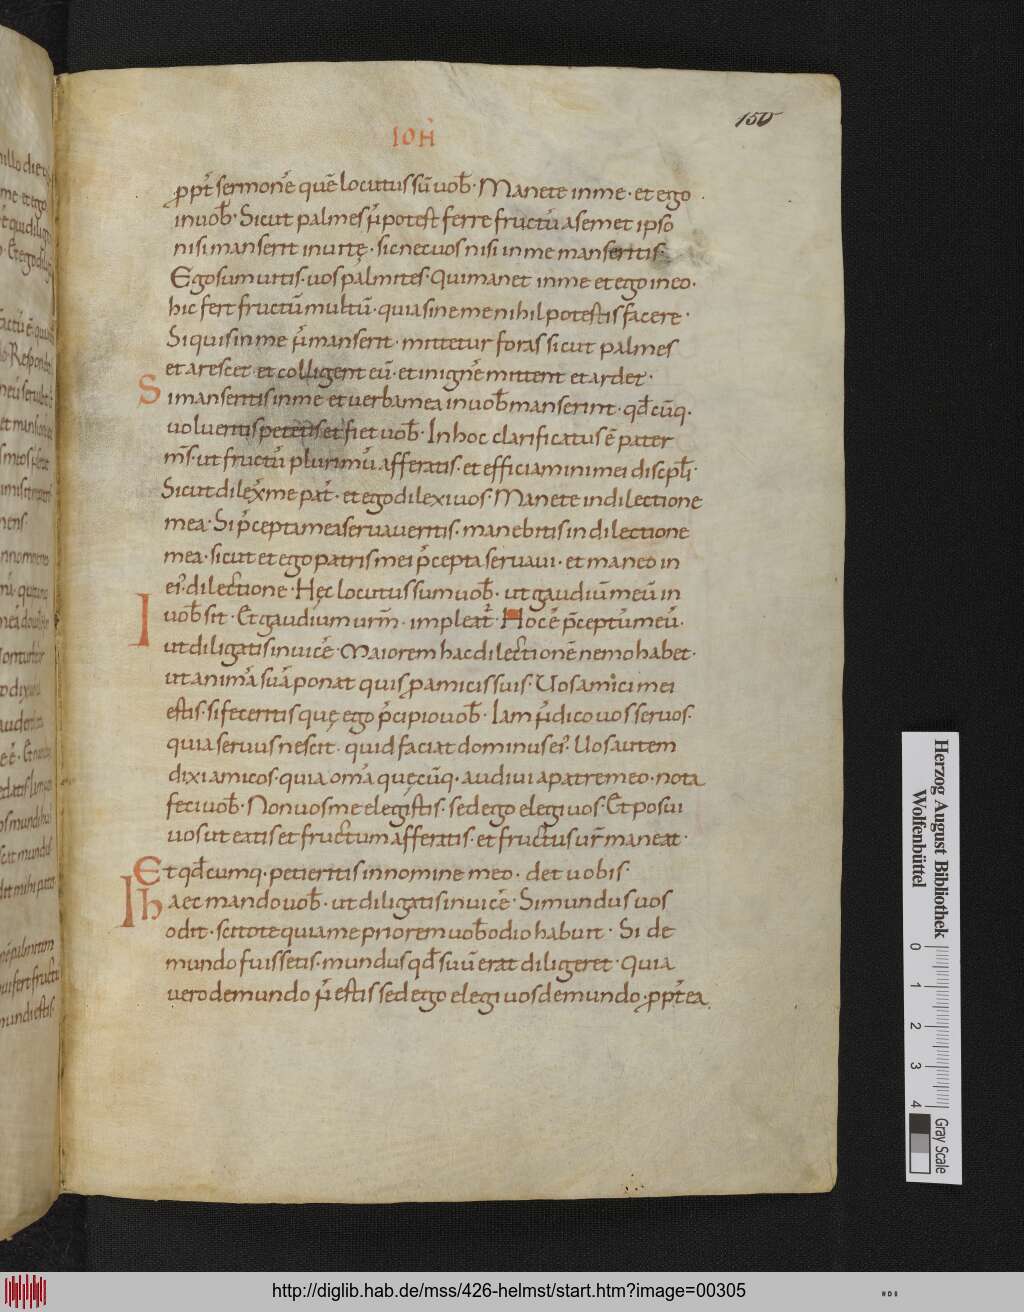 IOH̅
150
ꝓpt̄ sermonē quē locutus sū uob̄· Manete in me· et ego
in uob̄· Sicut palmes n̄ potest ferre fructū a semet ipso
nisi manserit in uite· sic nec uos nisi in me manseritis·
Ego sum uitis· uos palmites· Qui manet in me et ego in eo·
hic fert fructū multū· quia sine me nihil potestis facere·
Si quis in me n̄ manserit· mittetur foras sicut palmes
et arescet· et colligent eū· et in ignē mittent et ardet·
Si manseritis in me et uerba mea in uob̄ manserint· qd̄ cūq·
uolueritis petetis et fiet uob̄· In hoc clarificatus ē pater
m̄s· ut fructū plurimū afferatis· et efficiamini mei discpl̄i·
Sicut dilex̄ me pat̄· et ego dilexi uos· Manete in dilectione
mea· Si p̄cepta mea seruaueritis· manebitis in dilectione
mea· sicut et ego patris mei p̄cepta seruaui· et maneo in
ei᾽ dilectione· Hęc locutus sum uob̄· ut gaudiū meū in
uob̄ sit· Et gaudium urm̄· impleat᷑· Hoc ē p̄ceptū meū·
ut diligatis inuicē· Maiorem hac dilectionē nemo habet·
ut animā suā ponat quis pro amicis suis· Uos amici mei
estis· si feceritis quę ego p̄cipio uob̄· Iam n̄ dico uos seruos·
quia seruus nescit· quid faciat dominus ei᾽· Uos autem
dixi amicos· quia om̄a quęcūq· audiui a patre meo· nota
feci uob̄· Non uos me elegistis· sed ego elegi uos· Et posui
uos ut eatis et fructum afferatis· et fructus ur̄ maneat·
Et qd̄cumq· petieritis in nomine meo· det uobis·
Haec mando uob̄· ut diligatis inuicē· Si mundus uos
odit· scitote quia me priorem uob̄ odio habuit· Si de
mundo fuissetis· mundus qd̄ suū erat diligeret· Quia
uero de mundo n̄ estis sed ego elegi uos de mundo· ꝓpt̄ ea
Herzog August Bibliothek
Wolfenbüttel
0 1 2 3 4
Gray Scale
http://diglib.hab.de/mss/426-helmst/start.htm?image=00305